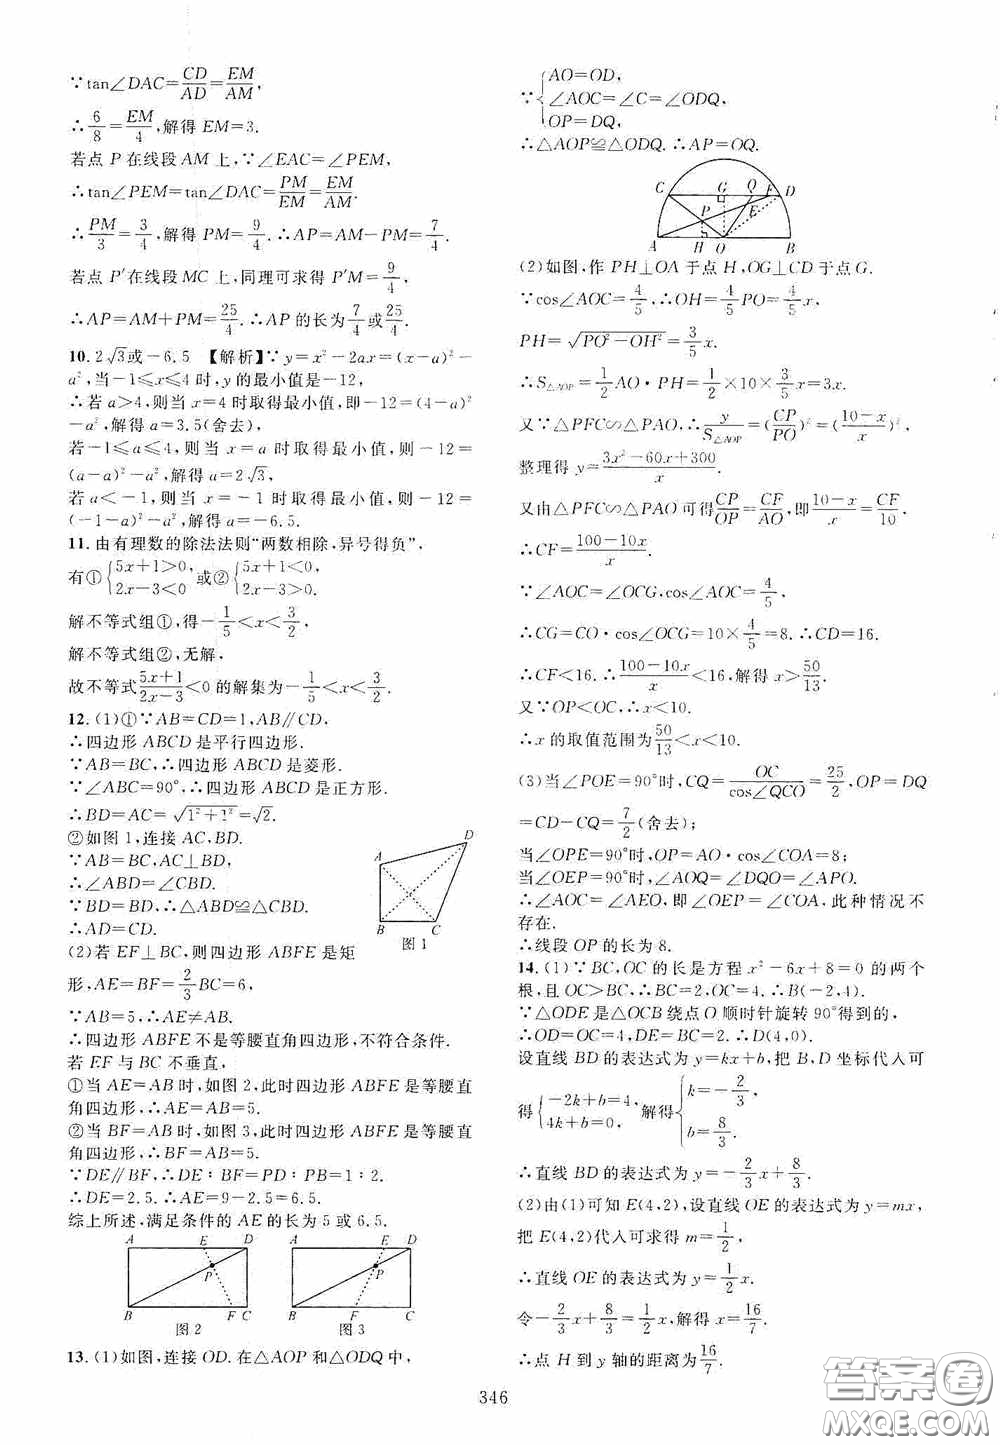 ∵tan∠DAC=CD/AD=EM/AM,
∴6/8=EM/4,解得 EM=3.
若点 P 在线段 AM 上,∵∠EAC=∠PEM,
∴tan∠PEM=tan∠DAC=PM/EM=EM/AM.
∴PM/3=3/4,解得 PM=9/4.∴AP=AM-PM=7/4.
若点 P′在线段 MC 上,同理可求得 P′M=9/4,
∴AP=AM+PM=25/4.∴AP 的长为7/4或25/4.
10.2√3或-6.5 【解析】∵y=x²-2ax=(x-a)²-
a²,当-1≤x≤4 时,y 的最小值是-12,
∴若 a>4,则当 x=4 时取得最小值,即-12=(4-a)²
-a²,解得 a=3.5(舍去),
若-1≤a≤4,则当 x=a 时取得最小值,-12=
(a-a)²-a²,解得 a=2√3,
若 a<-1,则当 x=-1 时取得最小值,-12=
(-1-a)²-a²,解得 a=-6.5.
11.由有理数的除法法则“两数相除,异号得负”,
有①{5x+1>0, 2x-3<0 或②{5x+1<0, 2x-3>0.
解不等式组①,得-1/5<x<3/2,
解不等式组②,无解,
故不等式(5x+1)/(2x-3)<0 的解集为-1/5<x<3/2.
12.(1)①∵AB=CD=1,AB∥CD,
∴四边形 ABCD 是平行四边形.
∵AB=BC,∴四边形 ABCD 是菱形.
∵∠ABC=90°,∴四边形 ABCD 是正方形.
∴BD=AC=√(1²+1²)=√2.
②如图 1,连接 AC,BD.
∵AB=BC,AC⊥BD,
∴∠ABD=∠CBD.
∵BD=BD,∴△ABD≌△CBD.
∴AD=CD.
A
D
B
C
图 1
(2)若 EF⊥BC,则四边形 ABFE 是矩
形,AE=BF=2/3BC=6,
∵AB=5,∴AE≠AB.
∴四边形 ABFE 不是等腰直角四边形,不符合条件.
若 EF 与 BC 不垂直,
①当 AE=AB 时,如图 2,此时四边形 ABFE 是等腰直
角四边形,∴AE=AB=5.
②当 BF=AB 时,如图 3,此时四边形 ABFE 是等腰直
角四边形,∴BF=AB=5.
∵DE∥BF,∴DE∶BF=PD∶PB=1∶2.
∴DE=2.5.∴AE=9-2.5=6.5.
综上所述,满足条件的 AE 的长为 5 或 6.5.
A E D
P
B F C
图 2
A E D
P
B F C
图 3
13.(1)如图,连接 OD.在△AOP 和△ODQ 中,
∵{AO=OD, ∠AOC=∠C=∠ODQ, OP=DQ,
∴△AOP≌△ODQ.∴AP=OQ.
C G Q F D
P E
A H O B
(2)如图,作 PH⊥OA 于点 H,OG⊥CD 于点 G.
∵cos∠AOC=4/5,∴OH=4/5PO=4/5x,
PH=√(PO²-OH²)=3/5x.
∴S△AOP=1/2AO·PH=1/2×10×3/5x=3x.
又∵△PFC∽△PAO,∴y/S△AOP=(CP/PO)²=((10-x)/x)²,
整理得 y=(3x²-60x+300)/x.
又由△PFC∽△PAO 可得CP/OP=CF/AO,即(10-x)/x=CF/10.
∴CF=(100-10x)/x.
∵∠AOC=∠OCG,cos∠AOC=4/5,
∴CG=CO·cos∠OCG=10×4/5=8.∴CD=16.
∴CF<16.∴(100-10x)/x<16,解得 x>50/13.
又∵OP<OC,∴x<10.
∴x 的取值范围为50/13<x<10.
(3)当∠POE=90°时,CQ=OC/cos∠QCO=25/2,OP=DQ
=CD-CQ=7/2(舍去);
当∠OPE=90°时,OP=AO·cos∠COA=8;
当∠OEP=90°时,∠AOQ=∠DQO=∠APO.
∴∠AOC=∠AEO,即∠OEP=∠COA,此种情况不
存在.
∴线段 OP 的长为 8.
14.(1)∵BC,OC 的长是方程 x²-6x+8=0 的两个
根,且 OC>BC,∴BC=2,OC=4.∴B(-2,4).
∵△ODE 是△OCB 绕点 O 顺时针旋转 90°得到的,
∴OD=OC=4,DE=BC=2.∴D(4,0).
设直线 BD 的表达式为 y=kx+b,把 B,D 坐标代入可
得{-2k+b=4, 4k+b=0, 解得{k=-2/3, b=8/3.
∴直线 BD 的表达式为 y=-2/3x+8/3.
(2)由(1)可知 E(4,2),设直线 OE 的表达式为 y=mx,
把 E(4,2)代入可求得 m=1/2,
∴直线 OE 的表达式为 y=1/2x.
令-2/3x+8/3=1/2x,解得 x=16/7.
∴点 H 到 y 轴的距离为16/7.
346
答案圈
MXQE.COM